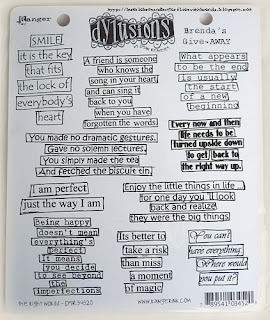 Ranger
Dylusions
Brenda's
Give-AWAY
SMILE
it is the key
that fits
the lock of
everybody's
heart
A friend is someone
who knows the
song in your heart
and can sing it
back to you
when you have
forgotten the words
What appears
to be the end
is usually
the start
of a new
beginning
You made no dramatic gestures,
Gave no solemn lectures,
You simply made the tea
And fetched the biscuit tin.
Every now and then
life needs to be
turned upside down
to get back to
the right way up.
I am perfect
just the way I am
Enjoy the little things in life...
for one day you'll look
back and realize
they were the big things
Being happy
doesn't mean
everything's
perfect
It means
you decide
to see beyond
the
imperfections
Its better to
take a risk
than miss
a moment
of magic
You can't
have everything,
Where would
you put it?
THE RIGHT WORDS -
WWW.RANGERINK.COM